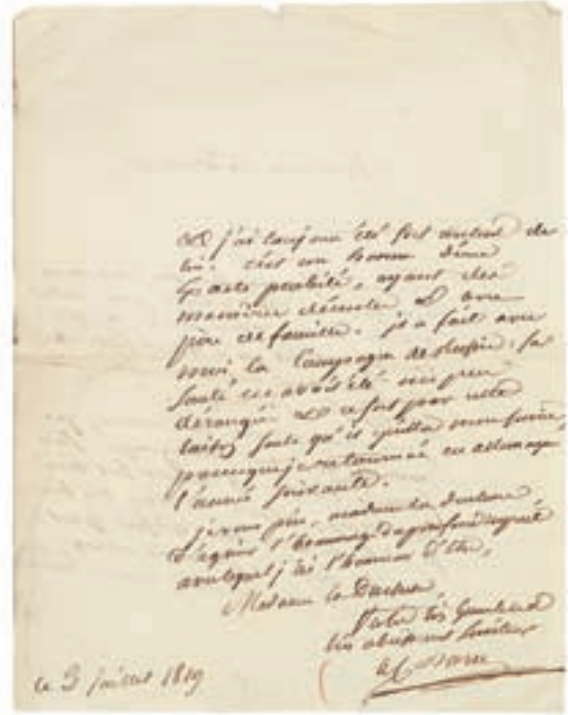 et j'ai toujours été fort content de
lui. c'est un homme d'une
exacte probité, ayant des
manières décentes et
père de famille. il a fait avec
moi la Campagne de Russie. Sa
Santé en avoit été un peu
dérangée et ce fut pour cette
seule qu'il quitta mon
je retournai en allemagne
l'année suivante.
je vous prie, madame la duchesse,
d'agréer l'hommage du profond respect
avec lequel j'ai l'honneur d'être,
Madame la Duchesse
Votre très humble et
très obéissant Serviteur
le 3 juillet 1819